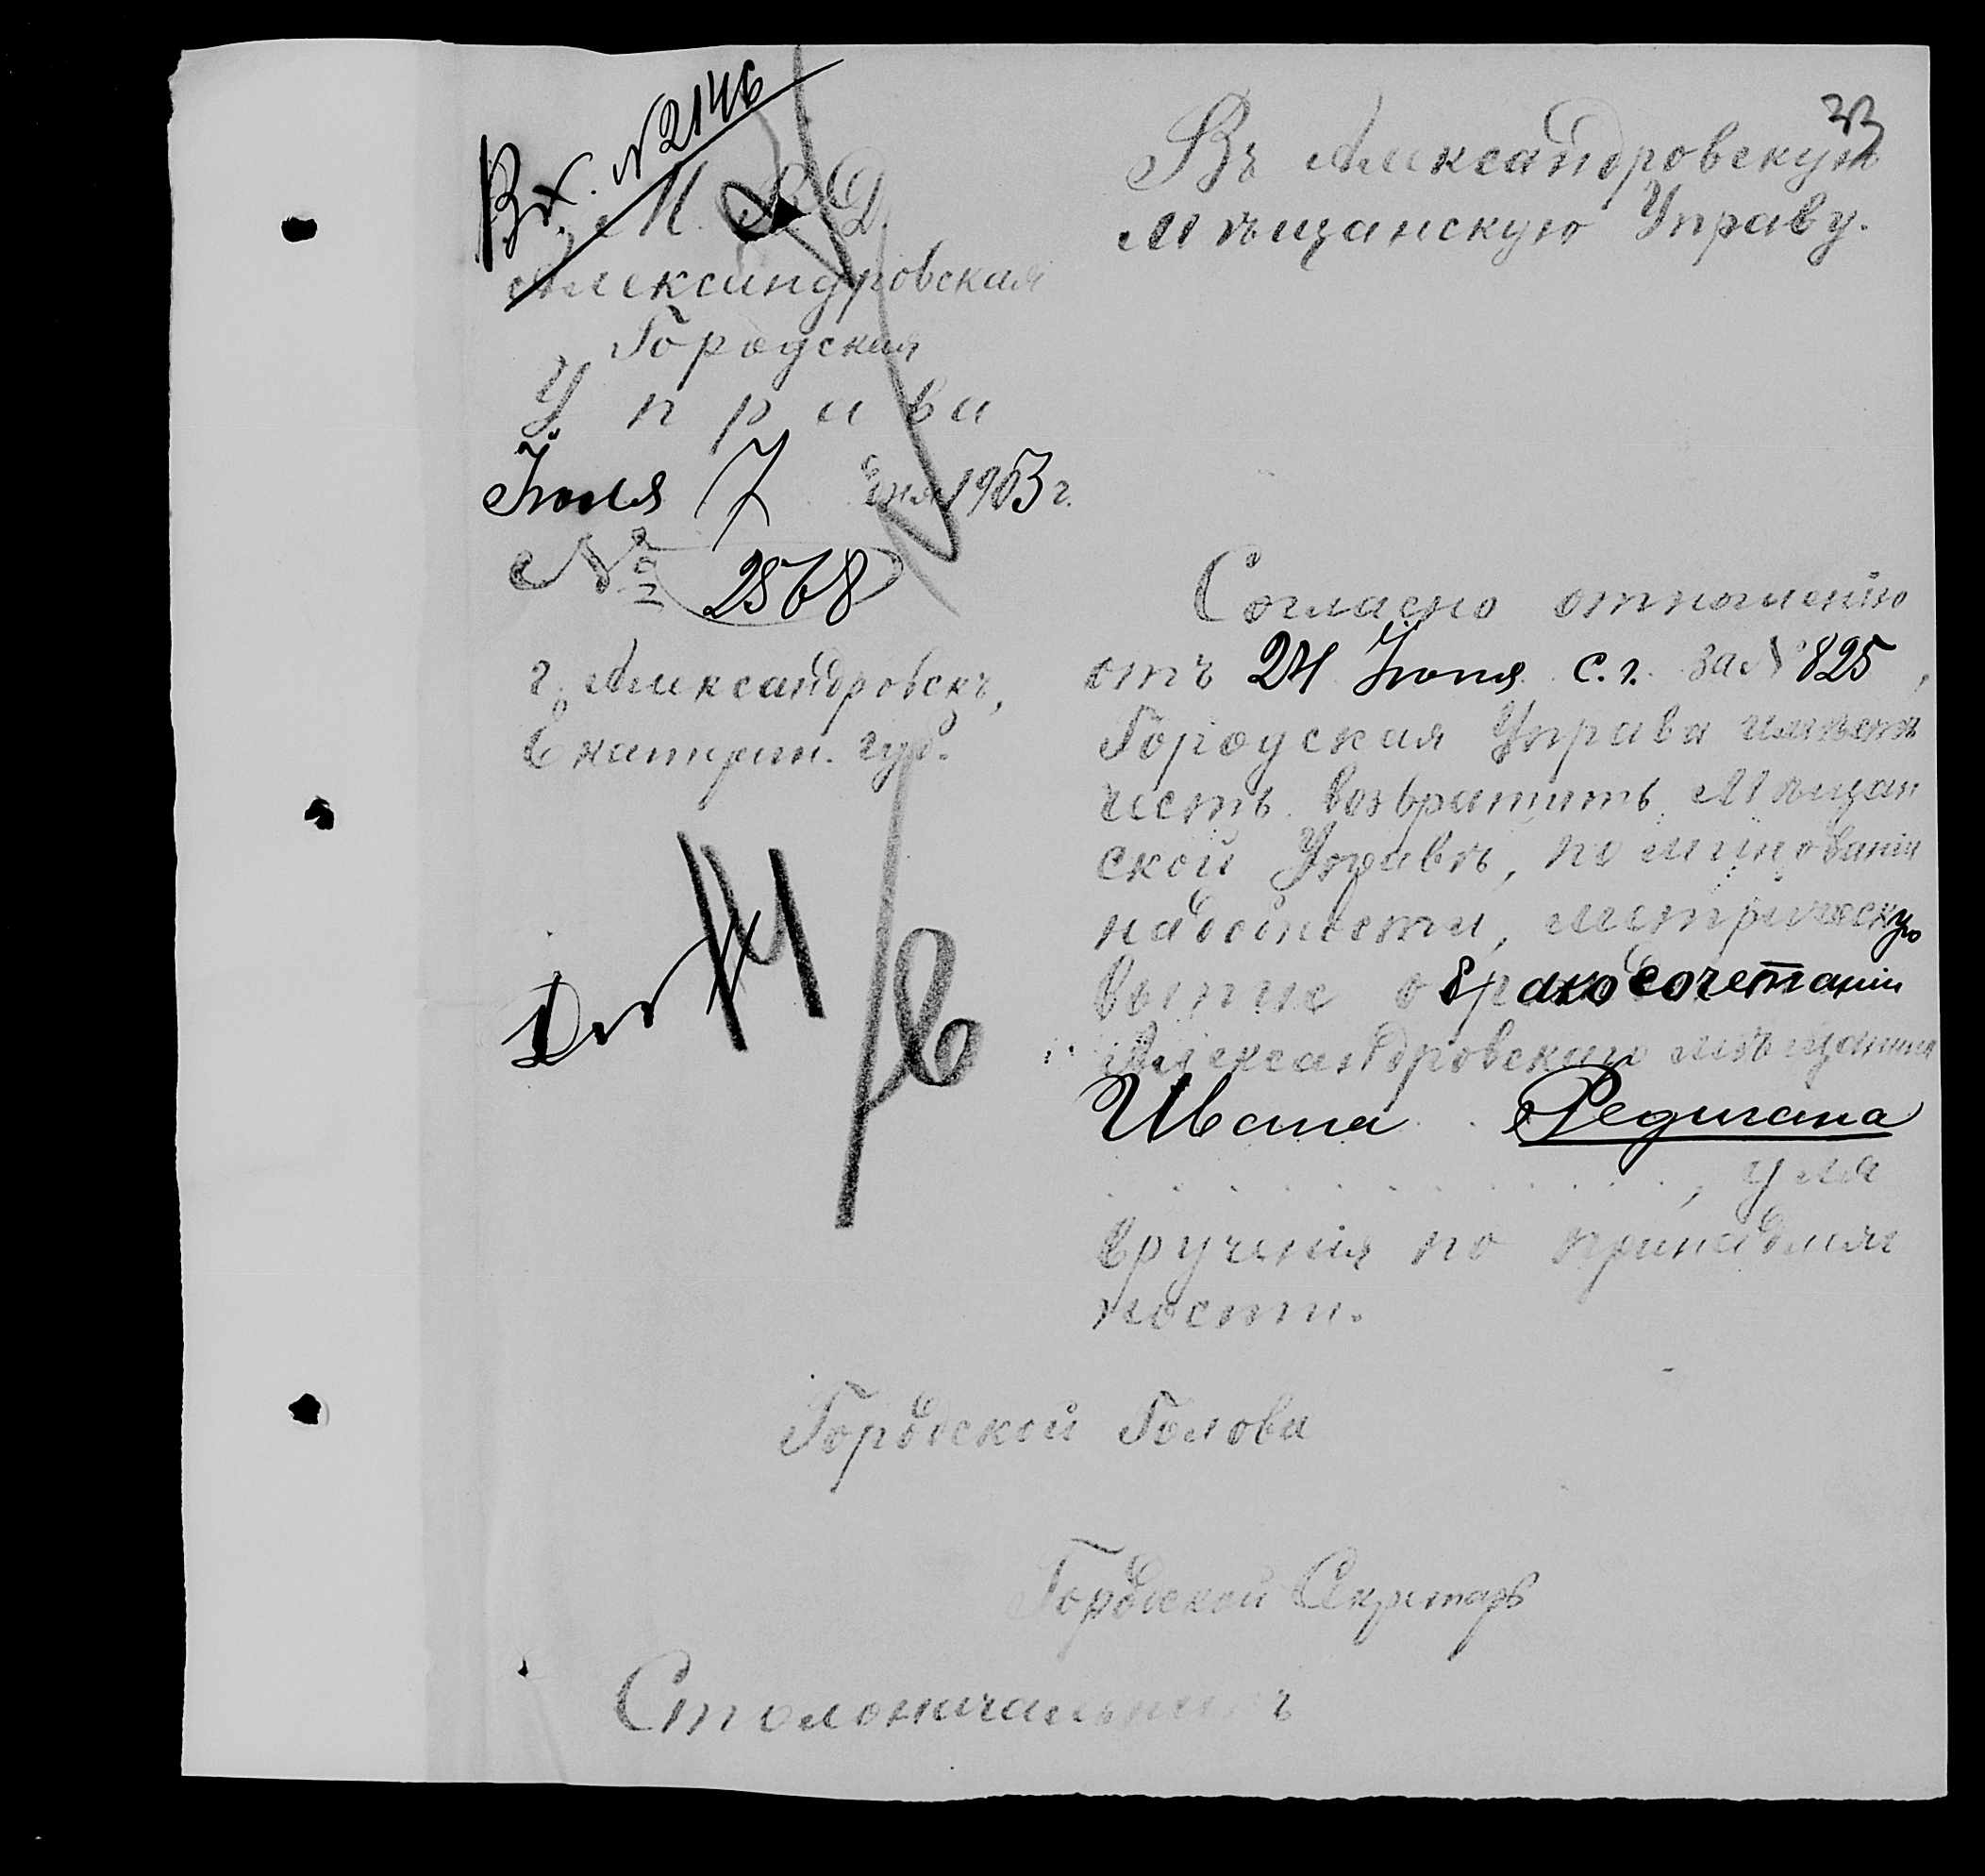 Вх. №2146
33
М. В. Д.
Александровская
Городская
Управа
Іюля 7 дня 1903 г.
№ 2568
г. Александровскъ,
Екатерин. губ.
Въ Александровскую
Мѣщанскую Управу.
Согласно отношенію
отъ 24 Іюня с. г. за № 825,
Городская Управа имѣетъ
честь возвратить Мѣщан
ской Управѣ, по минованіи
надобности, метрическую
выпис о бракосочетаніи
Александровскаго мѣщанина
Ивана Редигана
. . . . . . . . . . . . . , для
врученія по принадлеж
ности.
Городской Голова
Городской Секретарь
Столоначальникъ